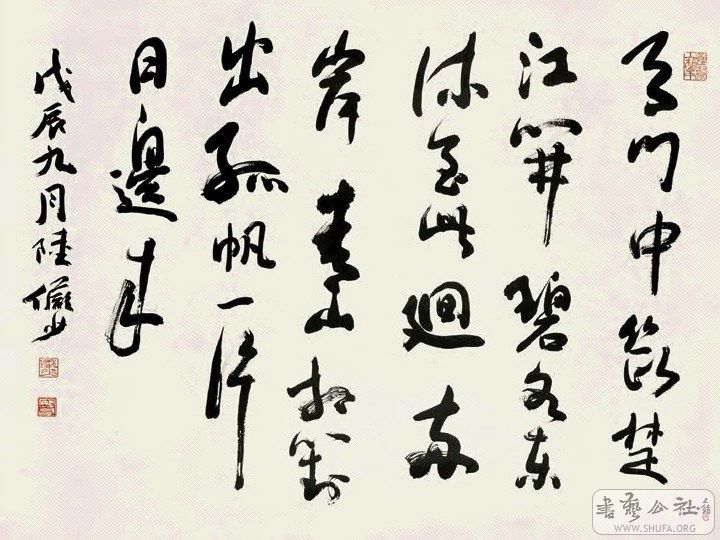 天门中斷楚
江開碧水东
流至此廻两
岸青山相對
出孤帆一片
日邊来
戊辰九月陸儼少
書藝公社
WWW.SHUFA.ORG